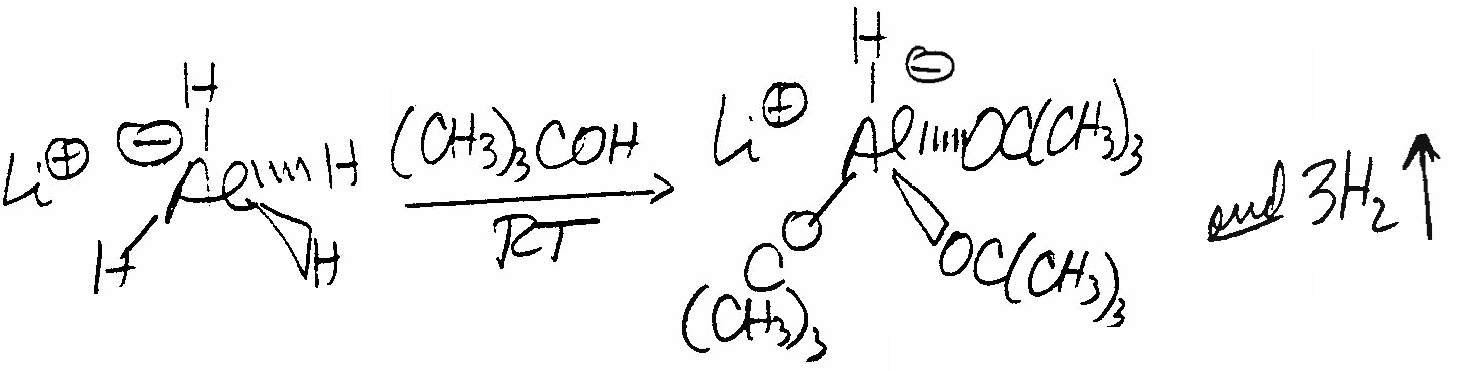 Li⊕ ⊖ H Al H H H
(CH3)3COH
RT
Li⊕ H ⊖ Al OC(CH3)3
O
C
(CH3)3
OC(CH3)3
and 3H2↑